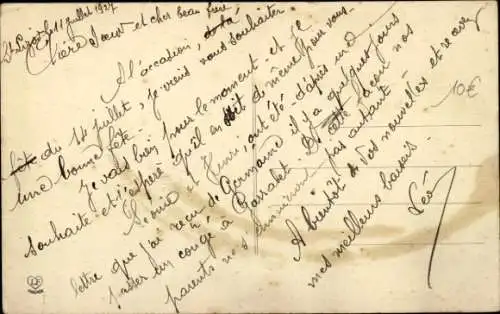 St Lizier, le 11 juillet 1927
Chère Soeur et cher beau frère
A l'occasion, de la
fête du 14 juillet, je viens vous souhaiter
une bonne fête.
Je vais bien pour le moment et je
souhaite et j'espère qu'il en soit de même pour vous.
et Henri, ont été d'après une
lettre que j'ai reçu de Germaine il y a quelques jours
passer un congé à
parents ne s'ennuieront pas autant
A bientôt de vos nouvelles et recevez
mes meilleurs baisers.
Léo
10€